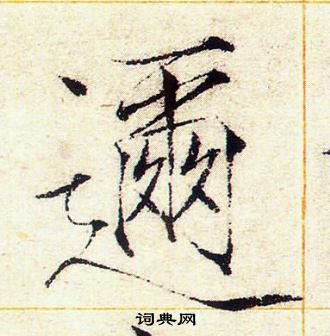 邇
词典网